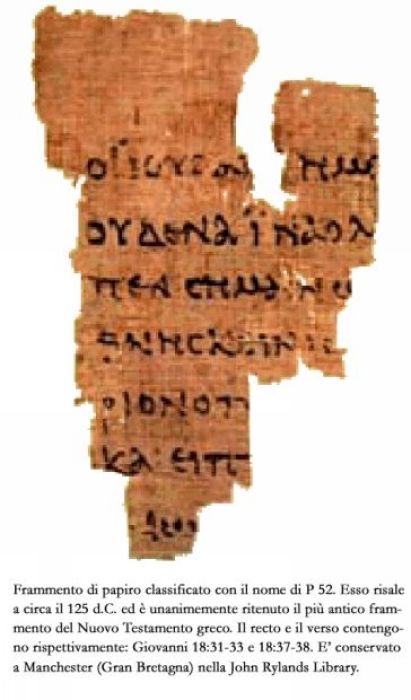 ΟΙ ΙΟΥΔΑΙ ΗΜ
ΟΥΔΕΝΑ ΙΝΑ Ο Λ
ΠΕΝ CΗΜΑΙΝΩ
ΘΝΗCΚΕΙΝ ΙC
ΡΙΟΝ Ο Π
ΚΑΙ ΕΙΠ
Frammento di papiro classificato con il nome di P 52. Esso risale
a circa il 125 d.C. ed è unanimemente ritenuto il più antico fram-
mento del Nuovo Testamento greco. Il recto e il verso contengo-
no rispettivamente: Giovanni 18:31-33 e 18:37-38. E' conservato
a Manchester (Gran Bretagna) nella John Rylands Library.